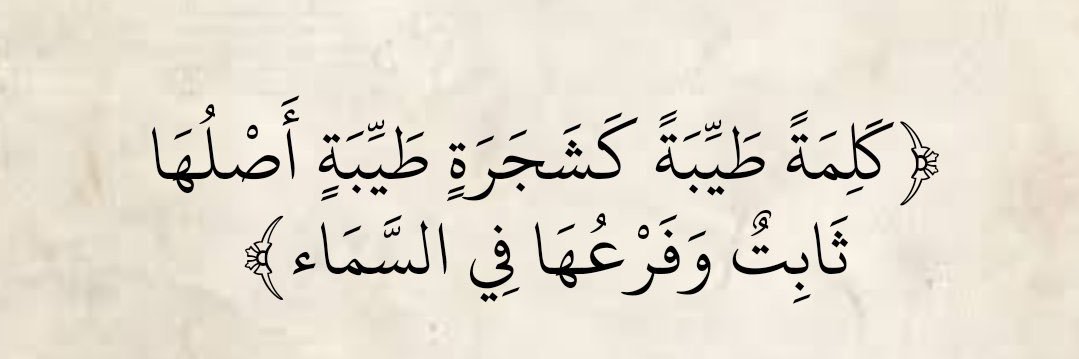 ﴿كَلِمَةً طَيِّبَةً كَشَجَرَةٍ طَيِّبَةٍ أَصْلُهَا
ثَابِتٌ وَفَرْعُهَا فِي السَّمَاء﴾